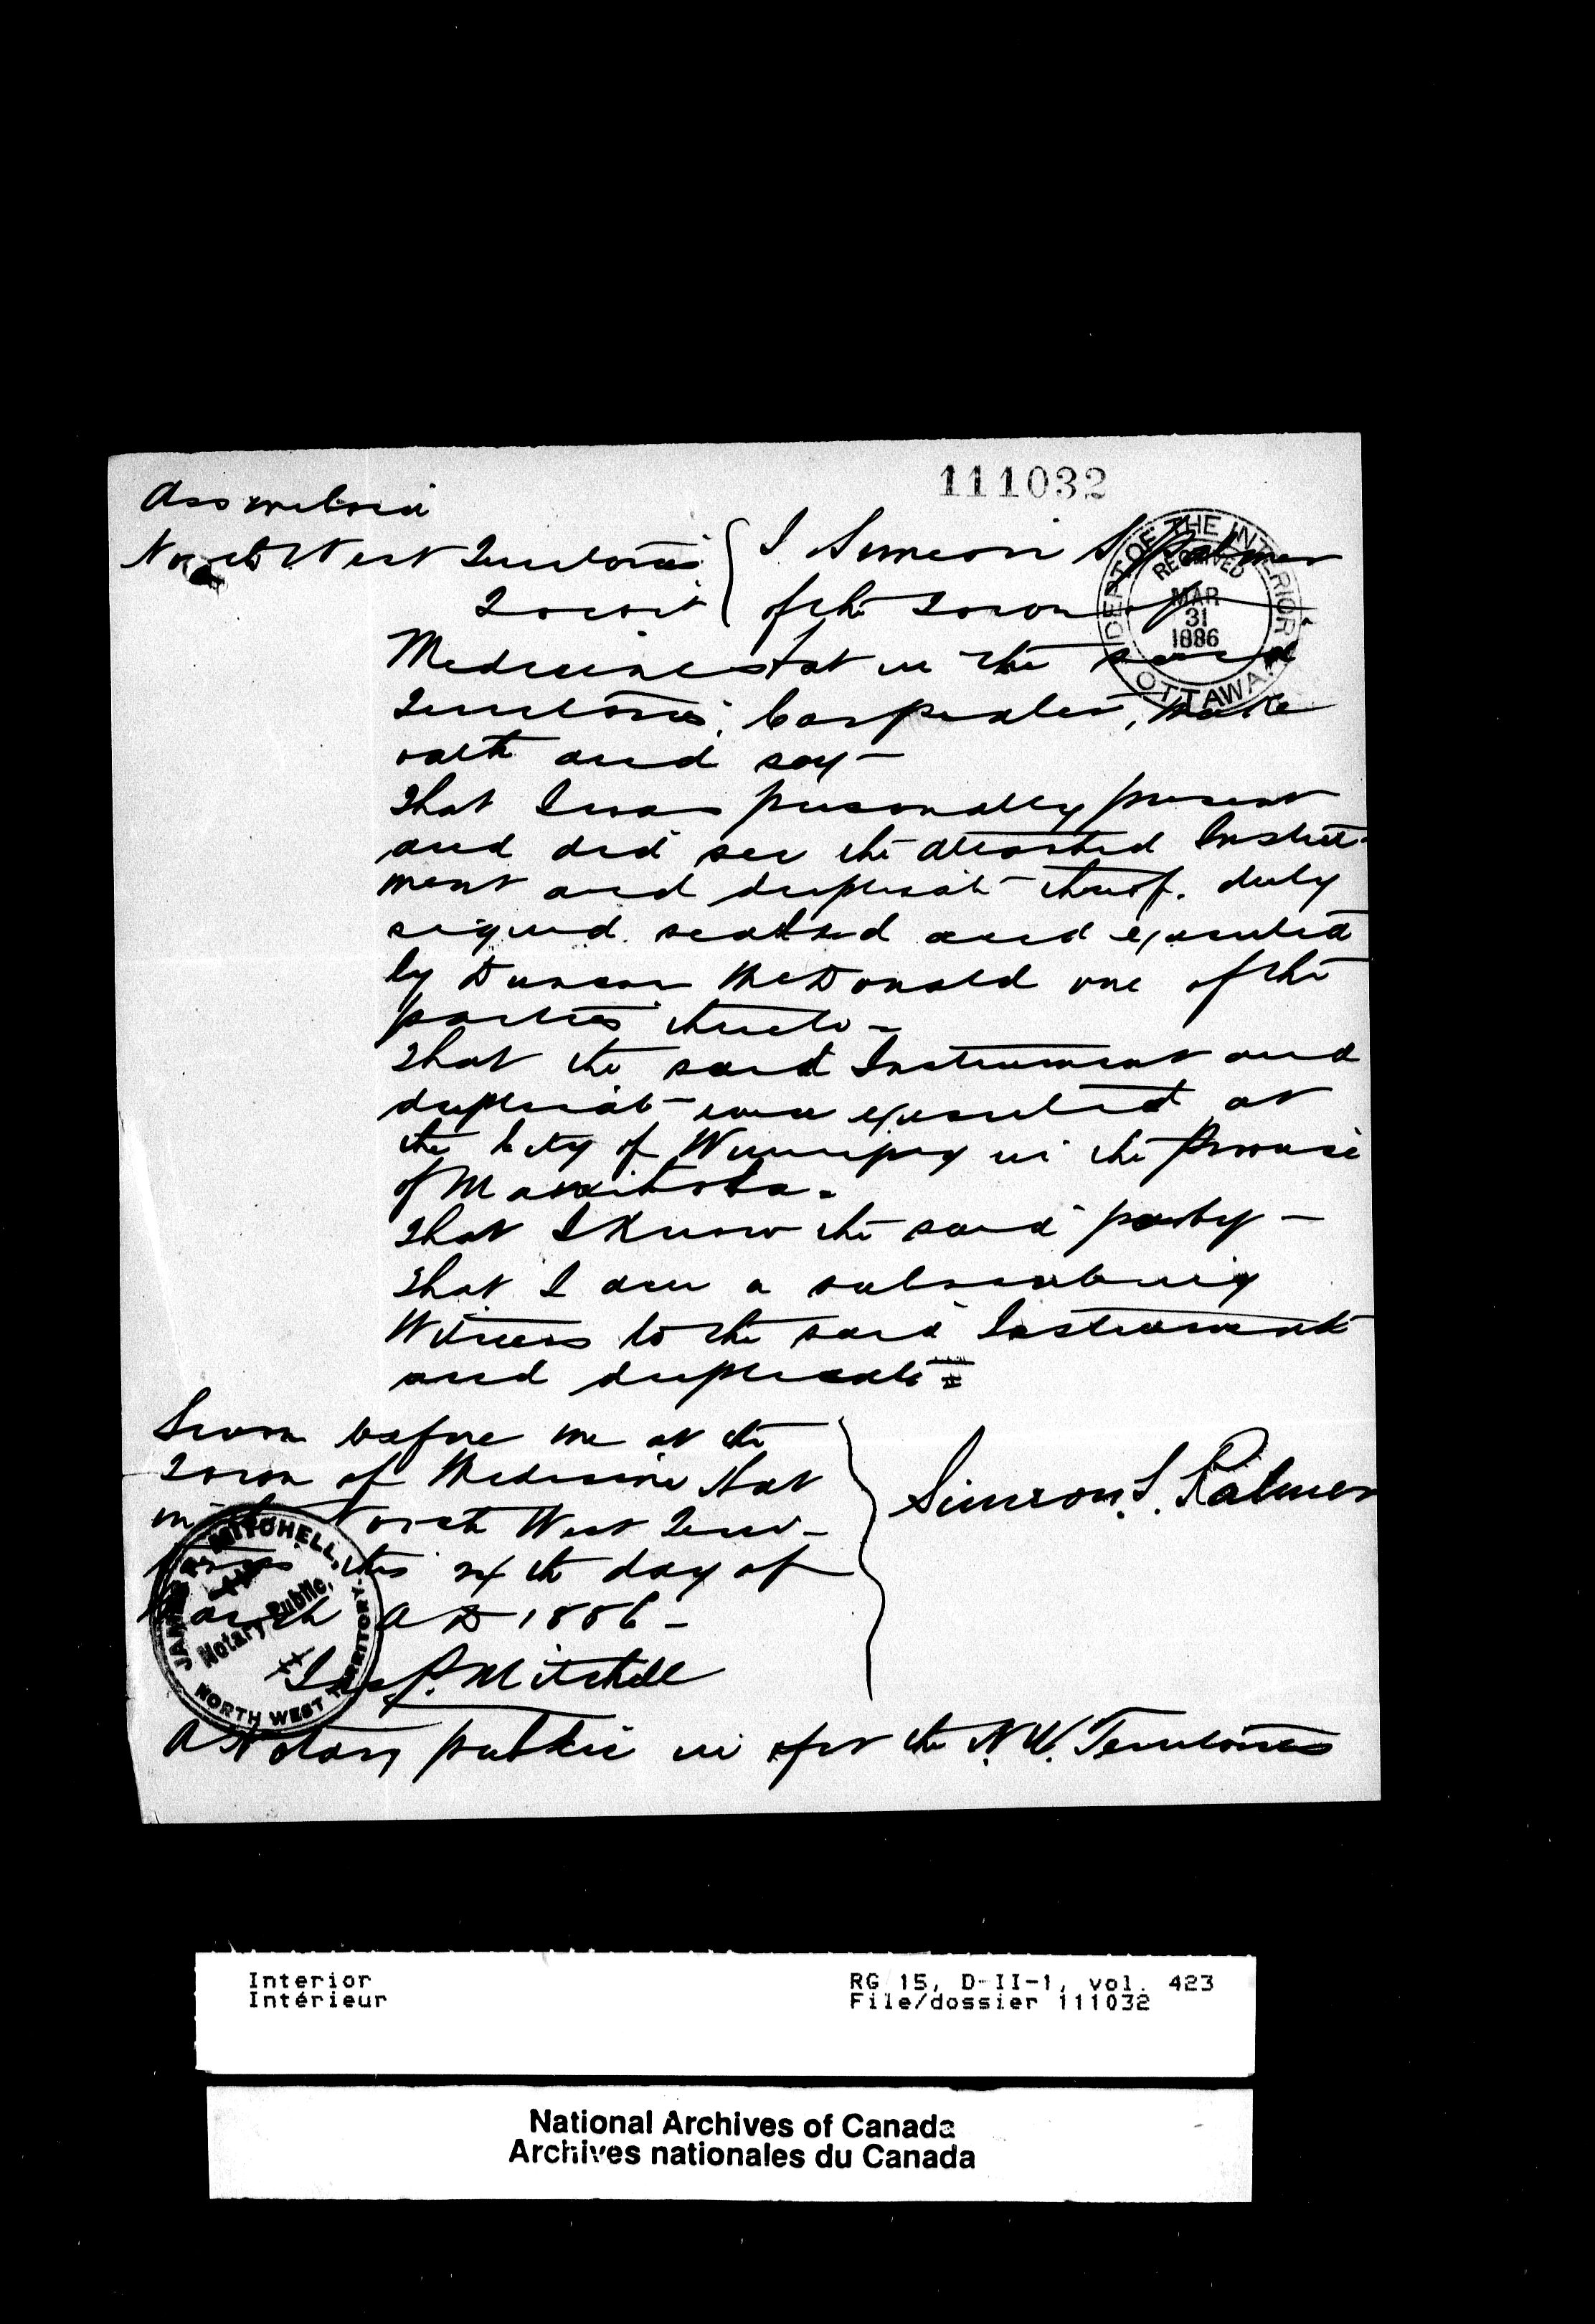 111032
Assiniboia
North West Territories
To wit
I Simeon S. Palmer
of the Town of
Medicine Hat in the said
Territories, Carpenter, make
oath and say—
That I was personally present
and did see the attached Instru-
ment and duplicate thereof. duly
signed. sealed and executed
by Duncan McDonald one of the
parties thereto—
That the said Instrument and
duplicate were executed at
the City of Winnipeg in the Province
of Manitoba.
That I know the said party—
That I am a subscribing
Witness to the said Instrument
and duplicate
DEPT OF THE INTERIOR
RECEIVED
MAR
31
1886
OTTAWA
Sworn before me at the
Town of Medicine Hat
in the North West Terri-
tories this the day of
March A D 1886—
Simeon S. Palmer
Jas P. Mitchell
A Notary public in & for the N.W. Territories
JAMES P. MITCHELL,
Notary Public,
NORTH WEST TERRITORY.
Interior
Intérieur
RG 15, D-II-1, vol. 423
File/dossier 111032
National Archives of Canada
Archives nationales du Canada